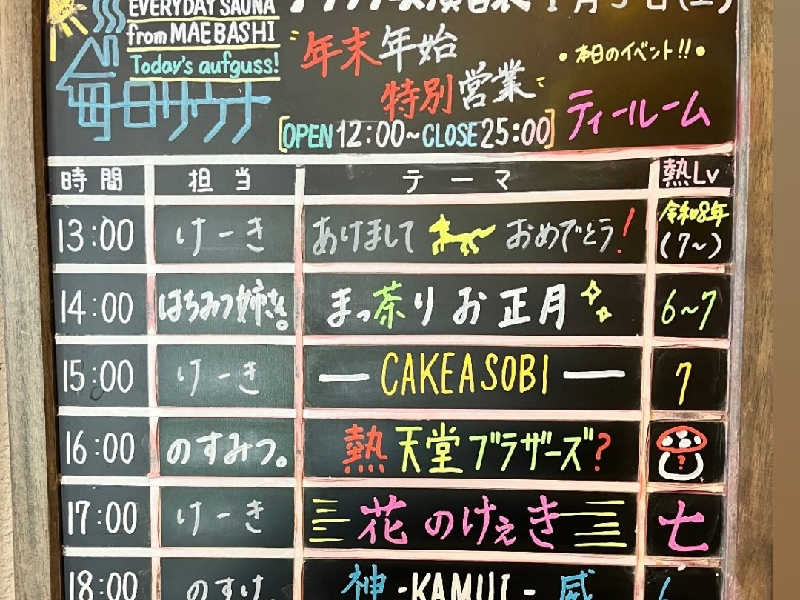 EVERYDAY SAUNA
from MAEBASHI
Today's aufguss!
毎日サウナ
年末年始
特別営業
OPEN 12:00~CLOSE 25:00
•本日のイベント!!•
ティールーム
時間 担当 テーマ 熱Lv
13:00 けーき あけまして おめでとう! 令和8年 (7~)
14:00 はちみつ姉さん。 まっ茶りお正月 6~7
15:00 けーき —CAKEASOBI— 7
16:00 のすみつ。 熱天堂ブラザーズ? ?
17:00 けーき 花のけぇき 七
18:00 のすけ 神-KAMUI-威